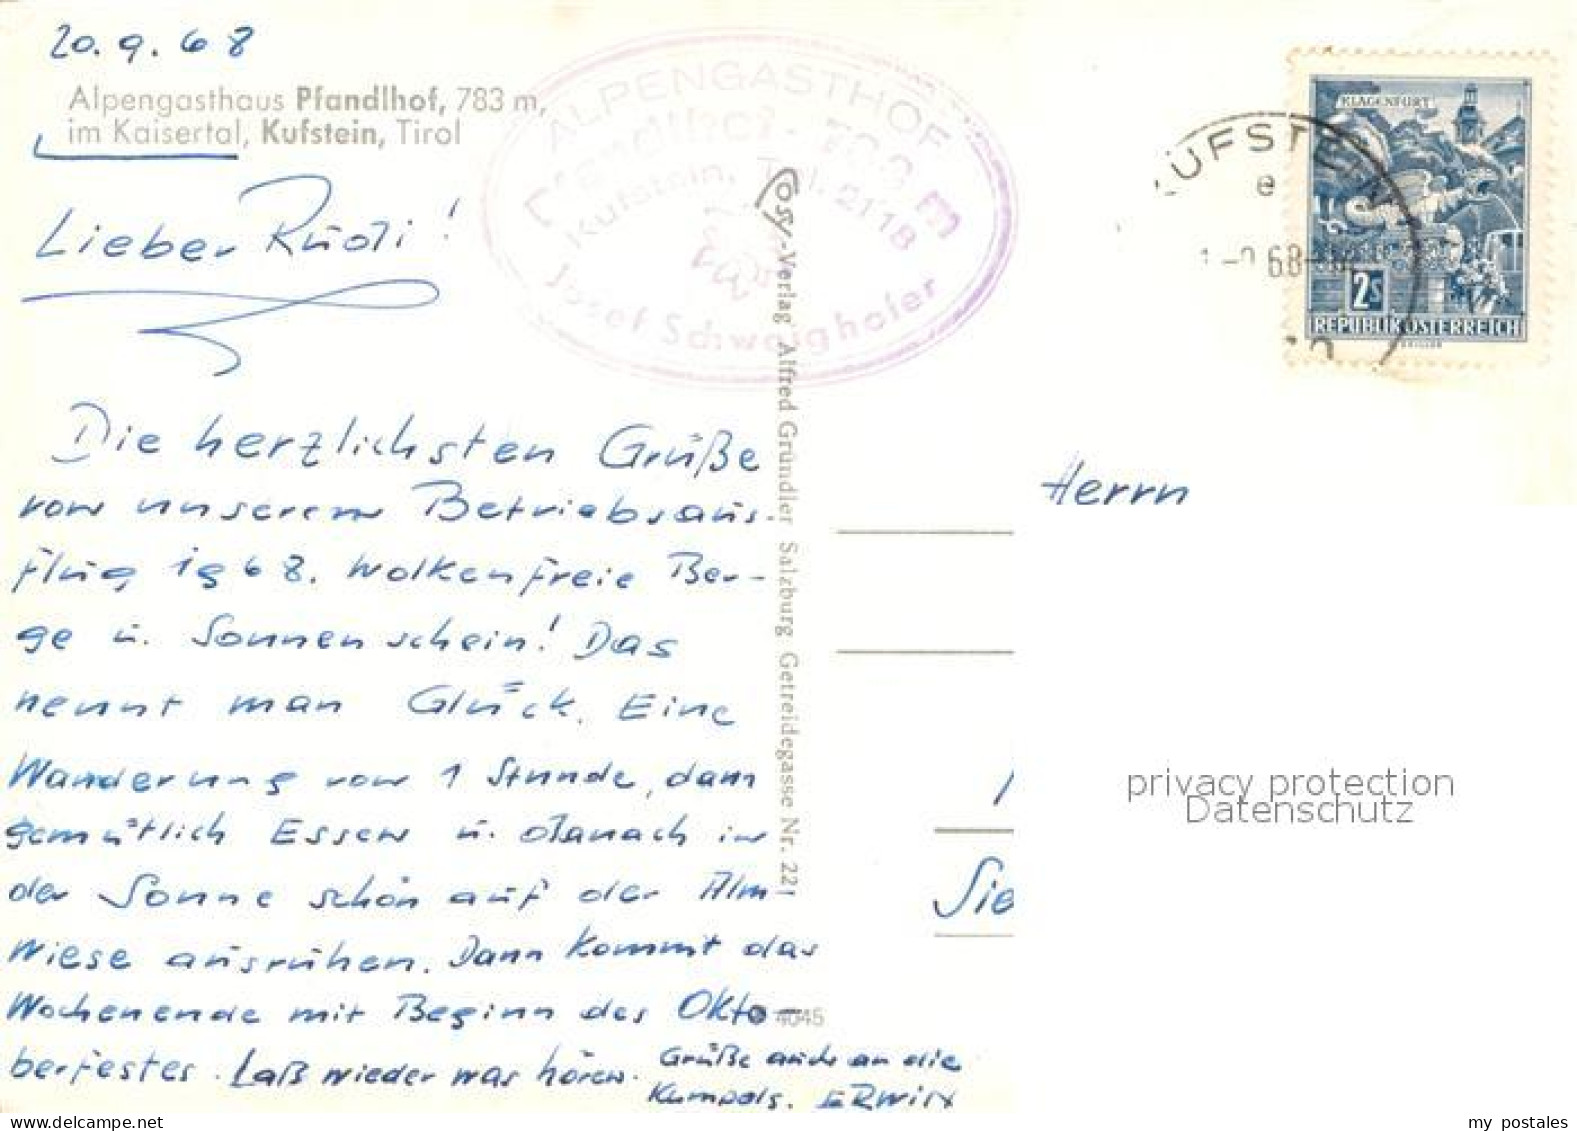 20.9.68
Alpengasthaus Pfandlhof, 783 m,
im Kaisertal, Kufstein, Tirol
Lieber Rudi!
Die herzlichsten Grüße
von unserem Betriebsaus-
flug 1968. Wolkenfreie Ber-
ge u. Sonnenschein! Das
nennt man Glück. Eine
Wanderung von 1 Stunde, dann
gemütlich Essen u. danach in
der Sonne schön auf der Alm-
Wiese ausruhen. Dann kommt das
Wochenende mit Beginn des Okto-
berfestes. Laß wieder was hören.
Grüße auch an die
Kumpels. ERWIN
ALPENGASTHOF
Kufstein, Tel. 2118
Josef Schwaighofer
Cosy-Verlag Alfred Gründler Salzburg Getreidegasse Nr. 22
4045
KUFSTEIN
e
KLAGENFURT
2S
REPUBLIK ÖSTERREICH
Herrn
Sie
privacy protection
Datenschutz
my postales